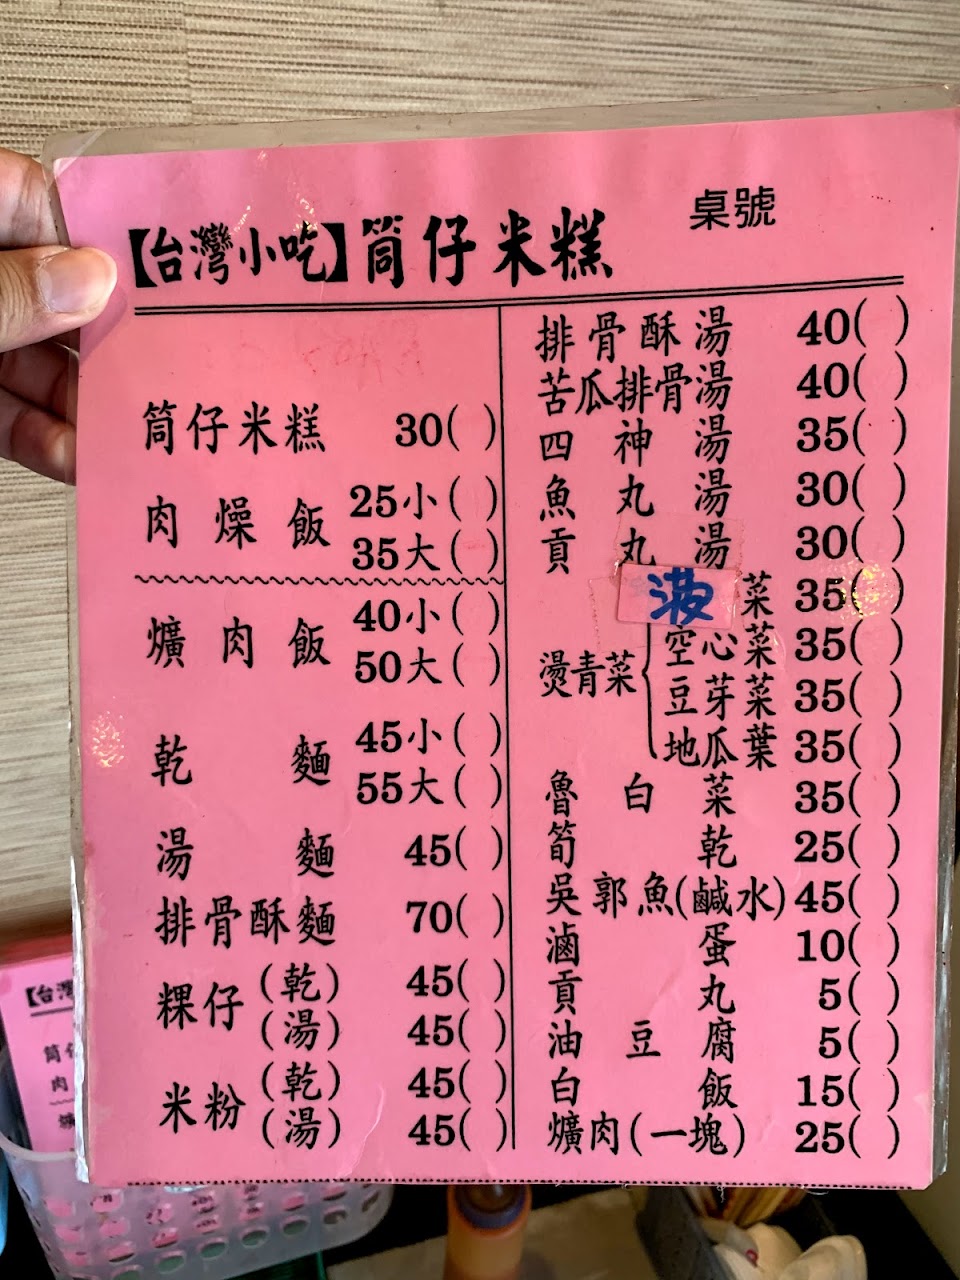 【台灣小吃】筒仔米糕 桌號
筒仔米糕 30( )
肉燥飯 25小( )
35大( )
爌肉飯 40小( )
50大( )
乾麵 45小( )
55大( )
湯麵 45( )
排骨酥麵 70( )
粿仔(乾) 45( )
(湯) 45( )
米粉(乾) 45( )
(湯) 45( )
排骨酥湯 40( )
苦瓜排骨湯 40( )
四神湯 35( )
魚丸湯 30( )
貢丸湯 30( )
燙青菜
菜 35( )
空心菜 35( )
豆芽菜 35( )
地瓜葉 35( )
魯白菜 35( )
筍乾 25( )
吳郭魚(鹹水) 45( )
滷蛋 10( )
貢丸 5( )
油豆腐 5( )
白飯 15( )
爌肉(一塊) 25( )
【台灣
筒仔
肉